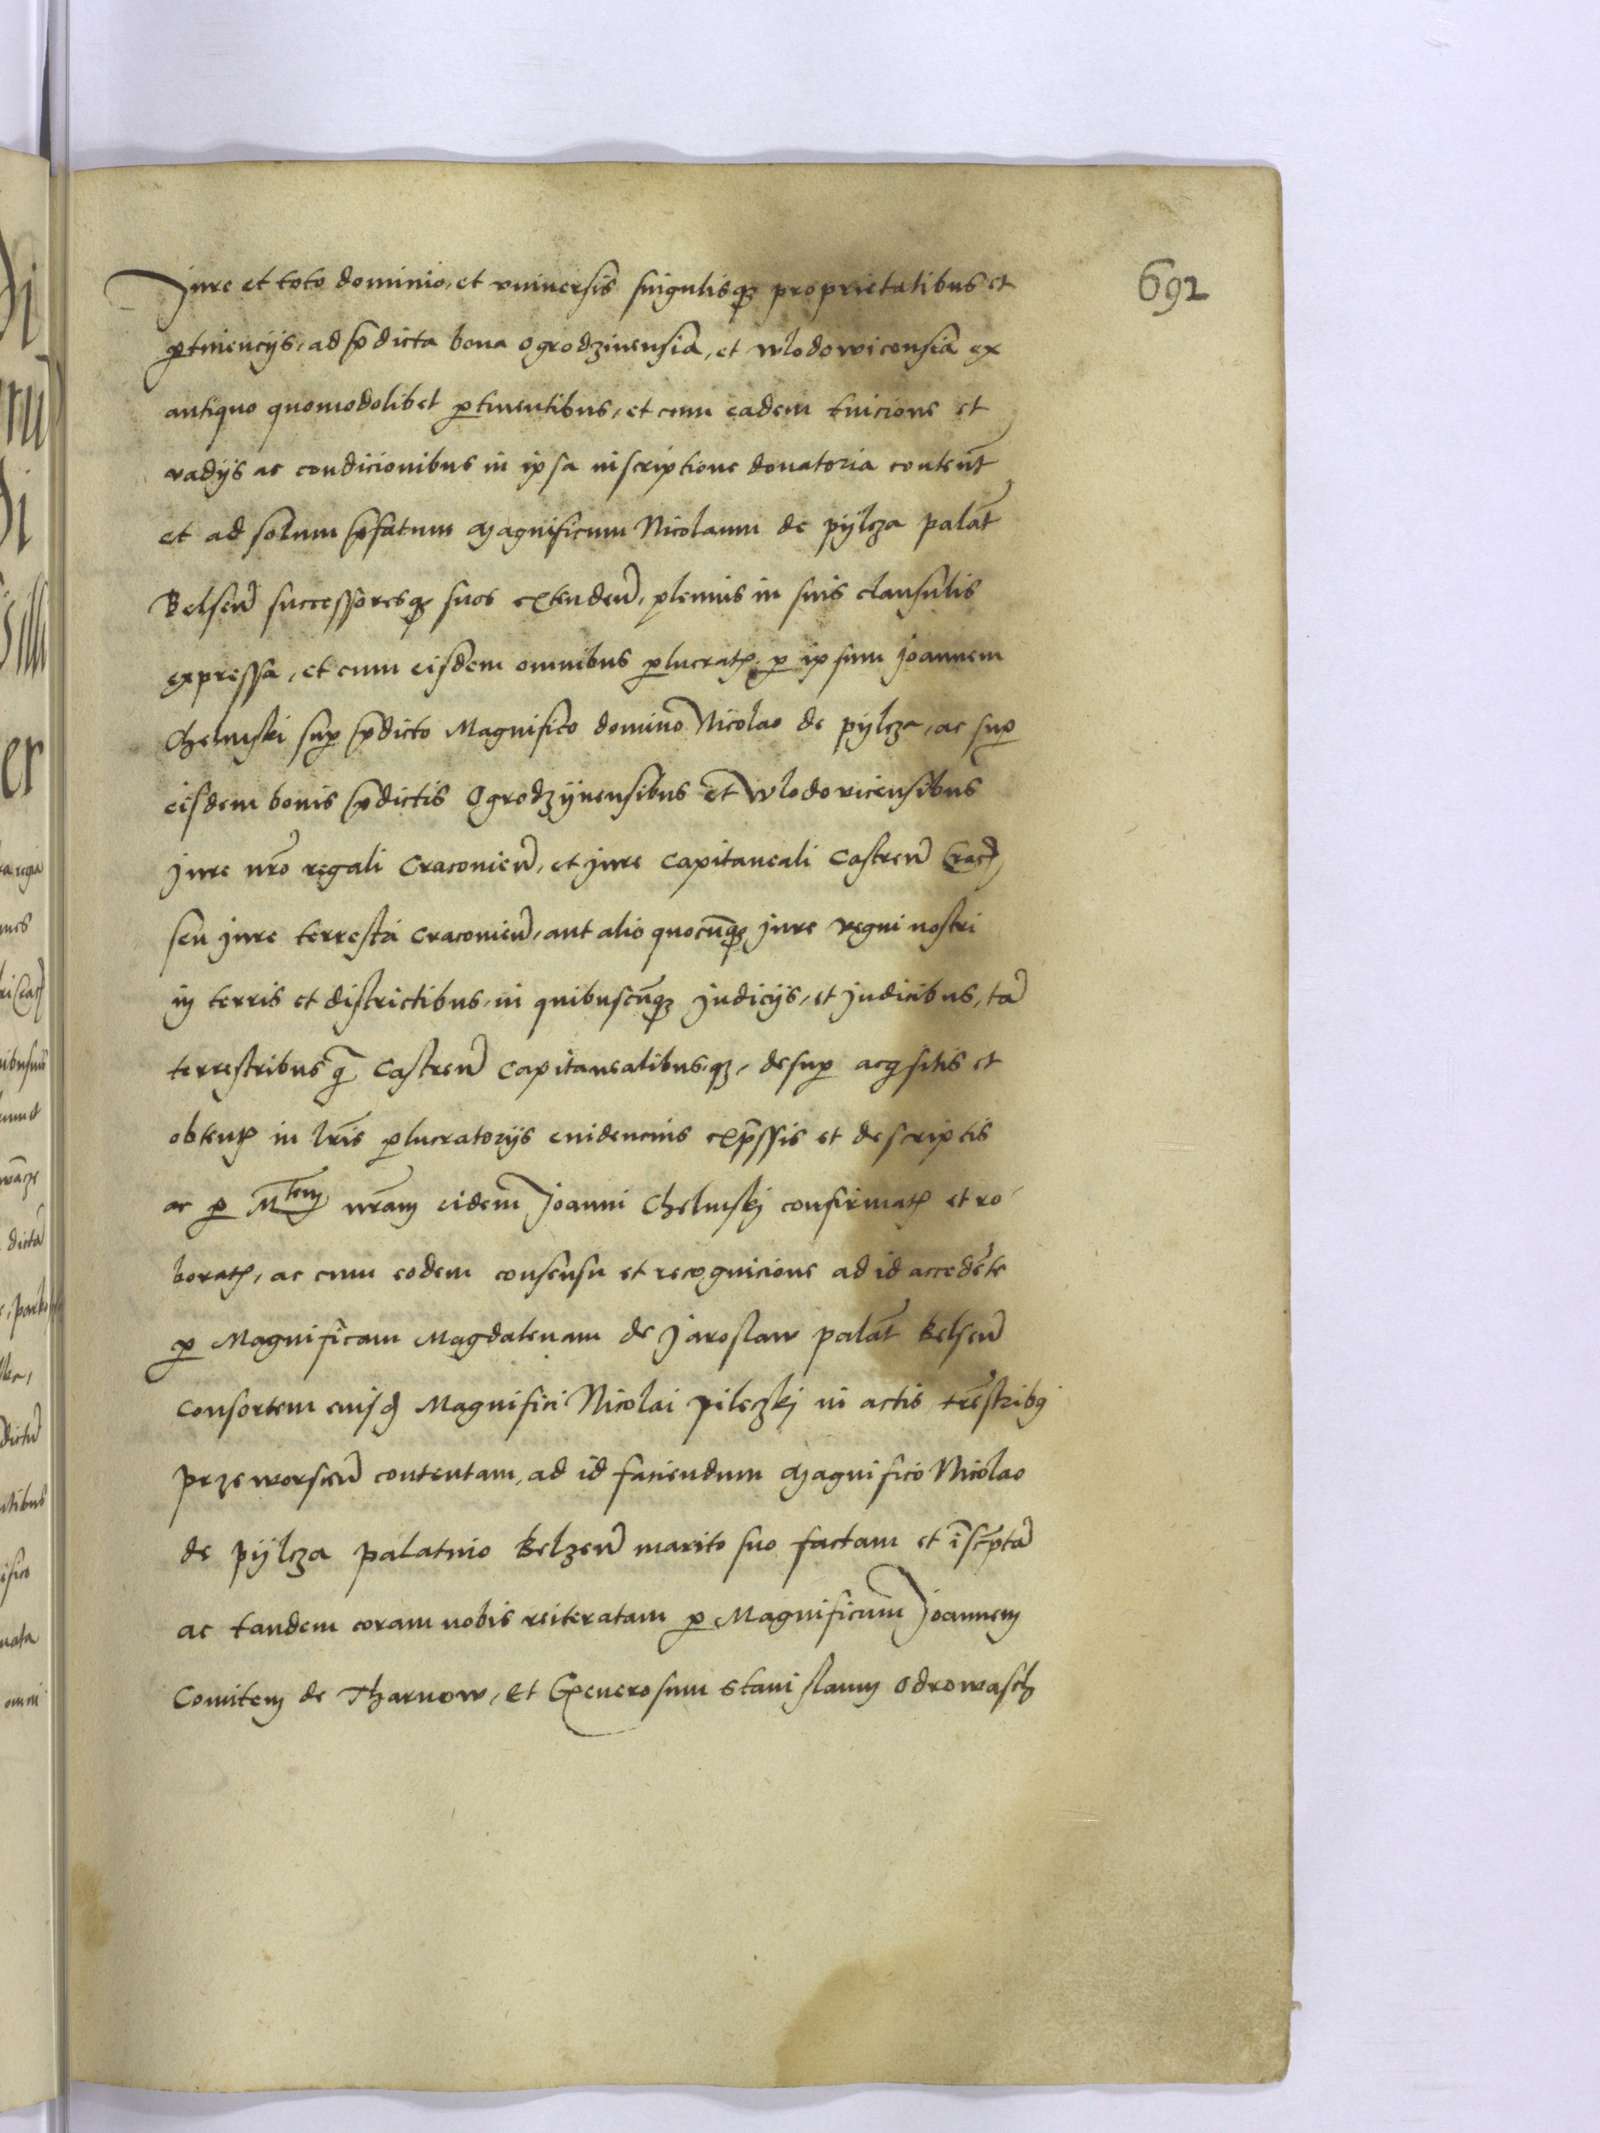 692
Jure et toto dominio, et vniuersis singulisq3 proprietatibus et
ptinencijs, ad pdicta bona ogrodzinensia, et wlodowicensia ex
antiquo quomodolibet ptinentibus, et cum eadem tuicione et
vadijs ac condicionibus in ipsa inscriptione donatoria content
et ad solum pfatum Magnificum Nicolaum de pÿlcza palat
Belsen successoresq3 suos extenden, plenius in suis clausulis
expressa, et cum eisdem omnibus plucrat p ipsum Joannem
Chelmski sup pdicto Magnifico domino Nicolao de pÿlcza, ac sup
eisdem bonis pdictis Ogrodzÿnensibus et wlodovicensibus
jure nro regali Cracouien, et jure capitaneali Castren Crac
seu jure terrestri Cracouien, aut alio quocunq3 jure regni nostri
in terris et districtibus, in quibuscunq3 judicijs, et judicibus, ta
terrestribus q Castren capitanealibusq3, desup acqsitis et
obtent in lris plucratorijs euidencius expssis et descriptis
ac p Mtem nram eidem Joanni Chelmskj confirmat et ro
borat, ac cum eodem consensu et recognicione ad id accedente
p Magnificam Magdalenam de Jaroslaw palat Belsen
consortem eiusd Magnifici Nicolai pileczkj in actis trestribq
przeworscen contentam, ad id faciendum Magnifico Nicolao
de pÿlcza palatino Belzen marito suo factam et iscpta
ac tandem coram nobis reiteratam p Magnificum Joannem
Comitem de Tharnow, et Generosum stanislaum odrowasch